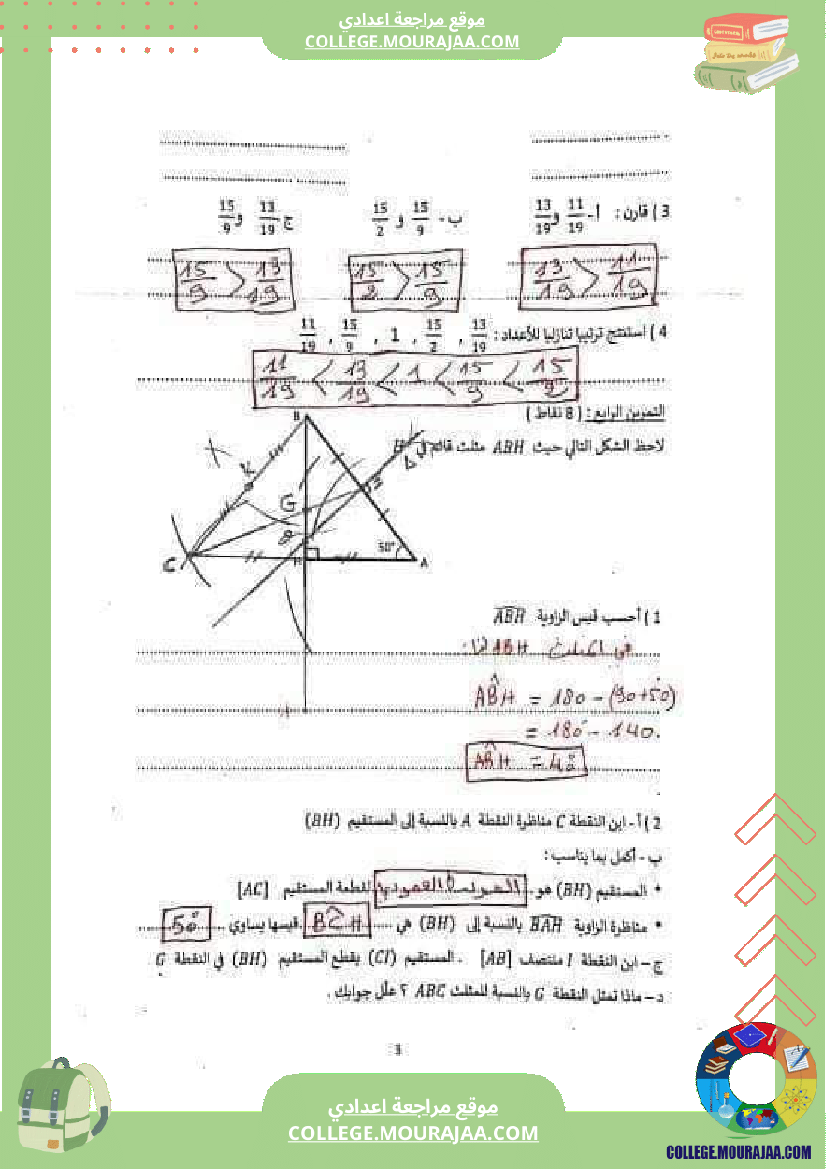 موقع مراجعة اعدادي
COLLEGE.MOURAJAA.COM
3 ) قارن : أ- 11/19 و 13/19 ب- 15/9 و 15/2 ج 13/19 و 15/9
13/19 > 11/19
15/2 > 15/9
15/9 > 13/19
4 ) استنتج ترتيبا تنازليا للأعداد : 13/19 , 15/2 , 1 , 15/9 , 11/19
11/19 < 13/19 < 1 < 15/9 < 15/2
التمرين الرابع : ( 8 نقاط )
لاحظ الشكل التالي حيث ABH مثلث قائم في H
B
K
Δ
G
C
50°
A
1 ) أحسب قيس الزاوية ABH
في المثلث ABH لنا:
ABH = 180 - (90+50)
= 180 - 140.
ABH = 40
2 ) أ - ابن النقطة C مناظرة النقطة A بالنسبة إلى المستقيم (BH)
ب - أكمل بما يناسب :
* المستقيم (BH) هو الموسط العمودي لقطعة المستقيم [AC]
* مناظرة الزاوية BAH بالنسبة إلى (BH) هي ..... BCH قيسها يساوي ..... 50
ج - ابن النقطة I منتصف [AB] . المستقيم (CI) يقطع المستقيم (BH) في النقطة G
د - ماذا تمثل النقطة G بالنسبة للمثلث ABC ؟ علل جوابك .
3
موقع مراجعة اعدادي
COLLEGE.MOURAJAA.COM
COLLEGE.MOURAJAA.COM